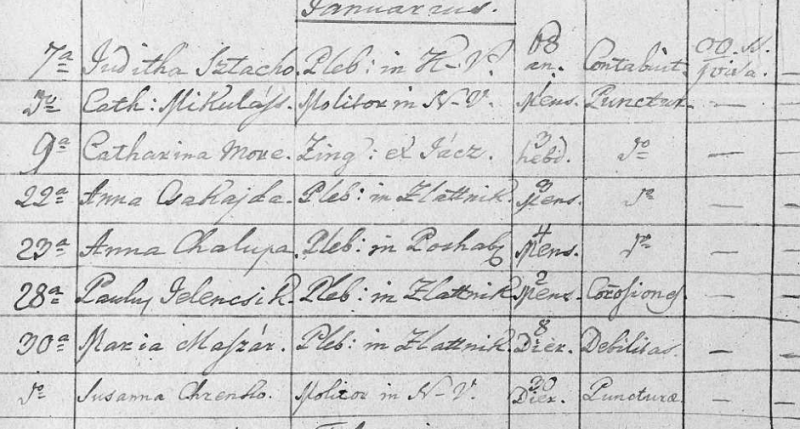 Januarius.
7ª Juditha Sztacho. Pleb: in H-V. 68 an. Contabuit. OO. S. Pvisa. —
Dº Cath: Mikuláss. Molitor in N-V. 1 Mens. Punctur. — —
9ª Catharina More. Zing: ex Jácz. 3 hebd. Dº — —
22ª Anna Csakajda. Pleb: in Zlattnik. 3 Mens. Dº — —
23ª Anna Chalupa. Pleb: in Poshab 4 Mens. Dº — —
28ª Paulus Jelencsik. Pleb: in Zlattnik 2 Mens. — —
30ª Maria Maszár. Pleb: in Zlattnik. 8 Dier. Debilitas. — —
Dº Susanna Chrenko. Molitor in N-V. 30 Dier. Puncturæ. — —